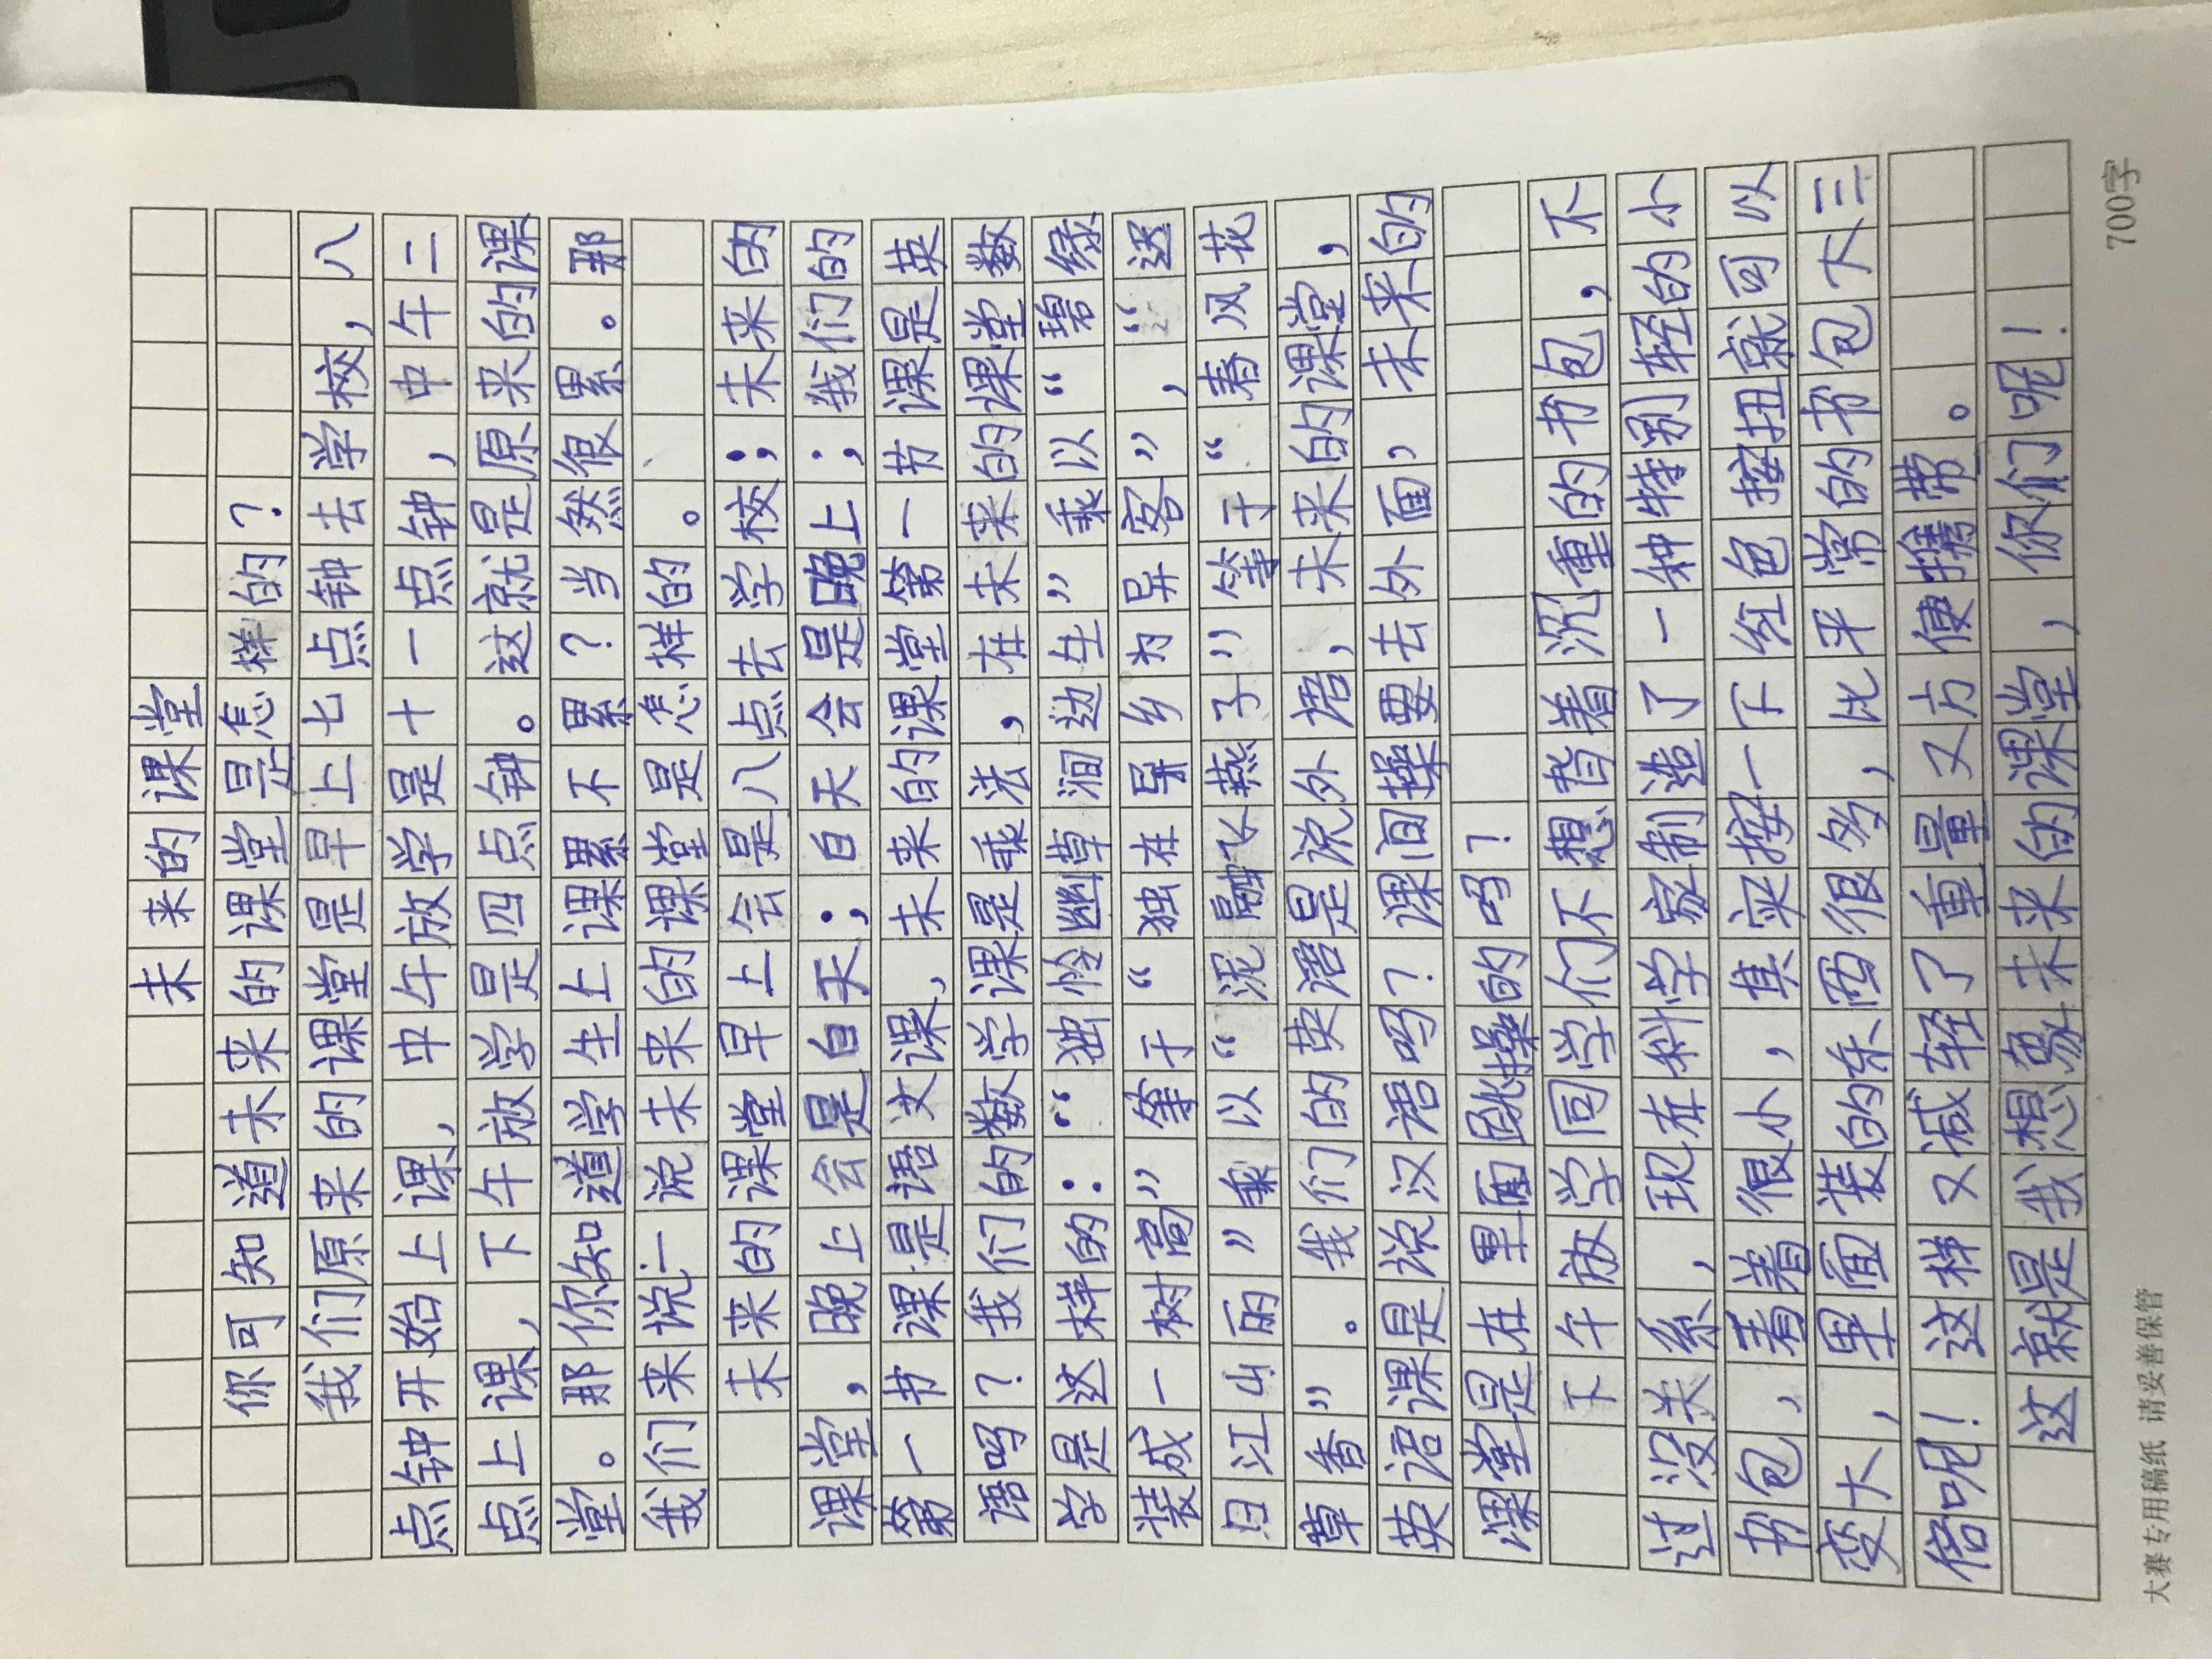 未来的课堂
你可知道未来的课堂是怎样的?
我们原来的课堂是早上七点钟去学校,八
点钟开始上课,中午放学是十一点钟,中午二
点上课,下午放学是四点钟。这就是原来的课
堂。那你知道学生上课累不累?当然很累。那
我们来说一说未来的课堂是怎样的。
未来的课堂早上会是八点去学校;未来的
课堂,晚上会是白天;白天会是晚上;我们的
第一节课是语文课,未来的课堂第一节课是英
语吗?我们的数学课是乘法,在未来的课堂数
学是这样的:“独怜幽草涧边生”乘以“碧绿
装成一树高”等于“独在异乡为异客”,“迟
日江山丽”乘以“泥融飞燕子”等于“春风花
草香”。我们的英语是说外语,未来的课堂,
英语课是说汉语吗?课间操要去外面,未来的
课堂是在里面做操的吗?
下午放学同学们不想背着沉重的书包,不
过没关系,现在科学家制造了一种特别轻的小
书包,看着很小,其实按一下红色按扭就可以
变大,里面装的东西很多,比平常的书包大三
倍呢!这样又减轻了重量又方便携带。
这就是我想象未来的课堂,你们呢!
700字
大赛专用稿纸 请妥善保管